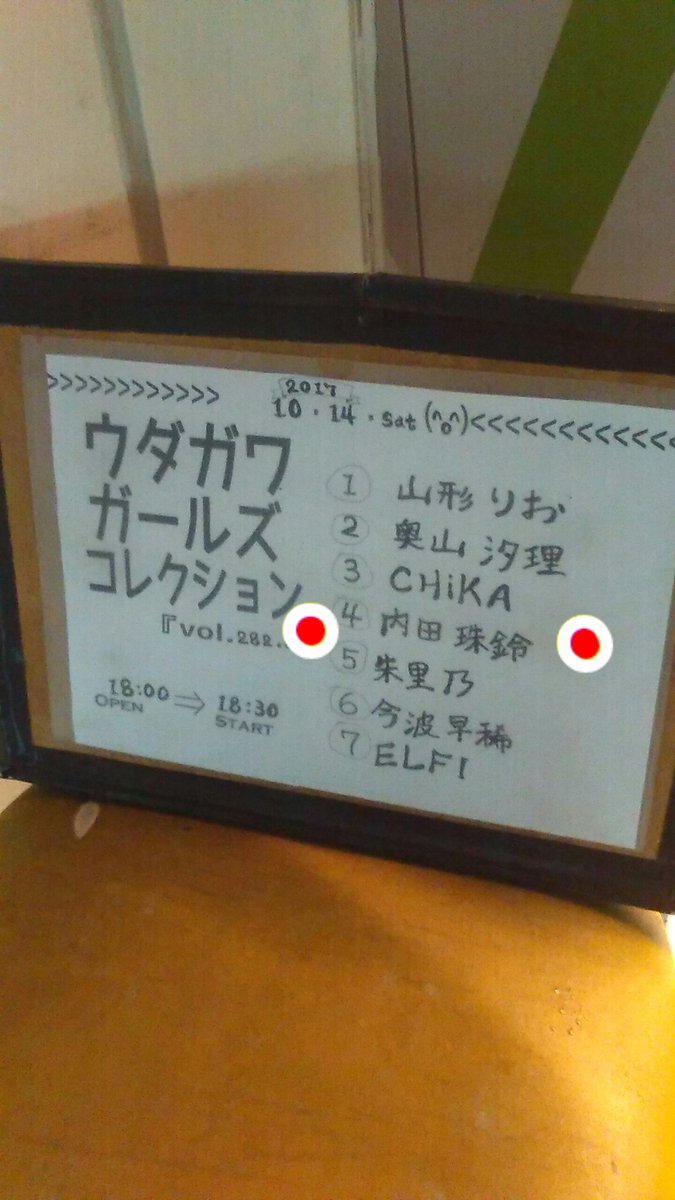 >>>>>>>>>>>> 2017 10・14・Sat (^o^)<<<<<<<<<<<<<
ウダガワ
ガールズ
コレクション
『vol.282.
18:00 ⇒ 18:30
OPEN START
① 山形 りお
② 奥山 汐理
③ CHiKA
④ 内田 珠鈴
⑤ 朱里乃
⑥ 今波早稀
⑦ ELFI